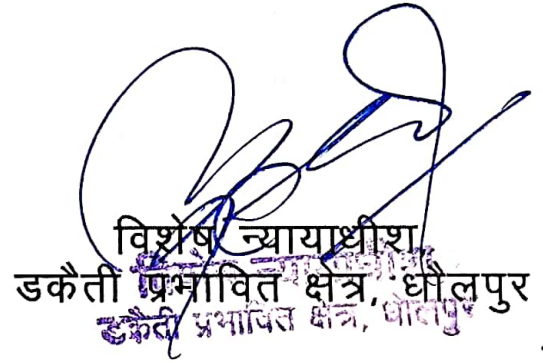 विशेष न्यायाधीश
डकैती प्रभावित क्षेत्र, धौलपुर
विशेष न्यायाधीश
डकैती प्रभावित क्षेत्र, धौलपुर